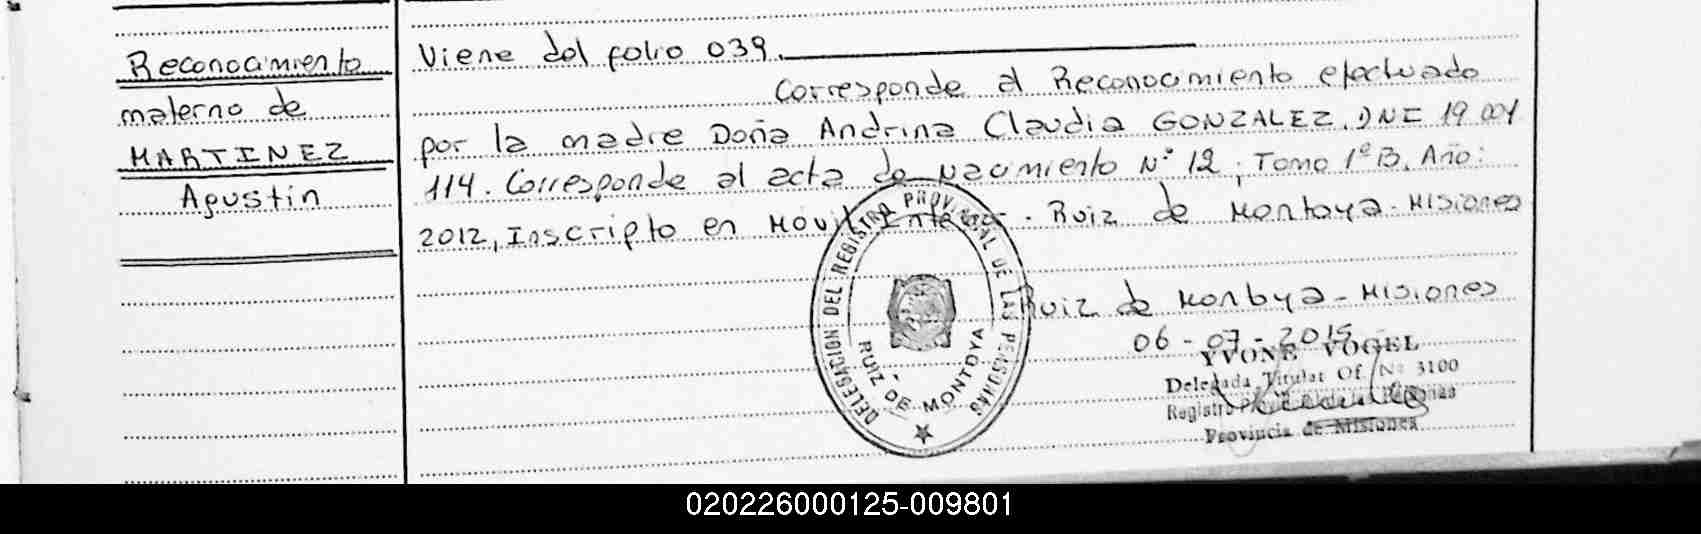 Reconocimiento
materno de
MARTINEZ
Agustin
Viene del folio 039.
Corresponde al Reconocimiento efectuado
por la madre Doña Andrina Claudia GONZALEZ, DNI 19 001
114. Corresponde al acta de Nacimiento N° 12, Tomo 1°B, Año:
2012, Inscripto en Movil Integr. Ruiz de Montoya - Misiones
Ruiz de Montoya - Misiones
06 - 07 - 2015
DELEGACION DEL REGISTRO PROVINCIAL DE LAS PERSONAS
RUIZ DE MONTOYA
YVONE VOGEL
Delegada Titular Of. N° 3100
Registro Provincial de las Personas
Provincia de Misiones
020226000125-009801